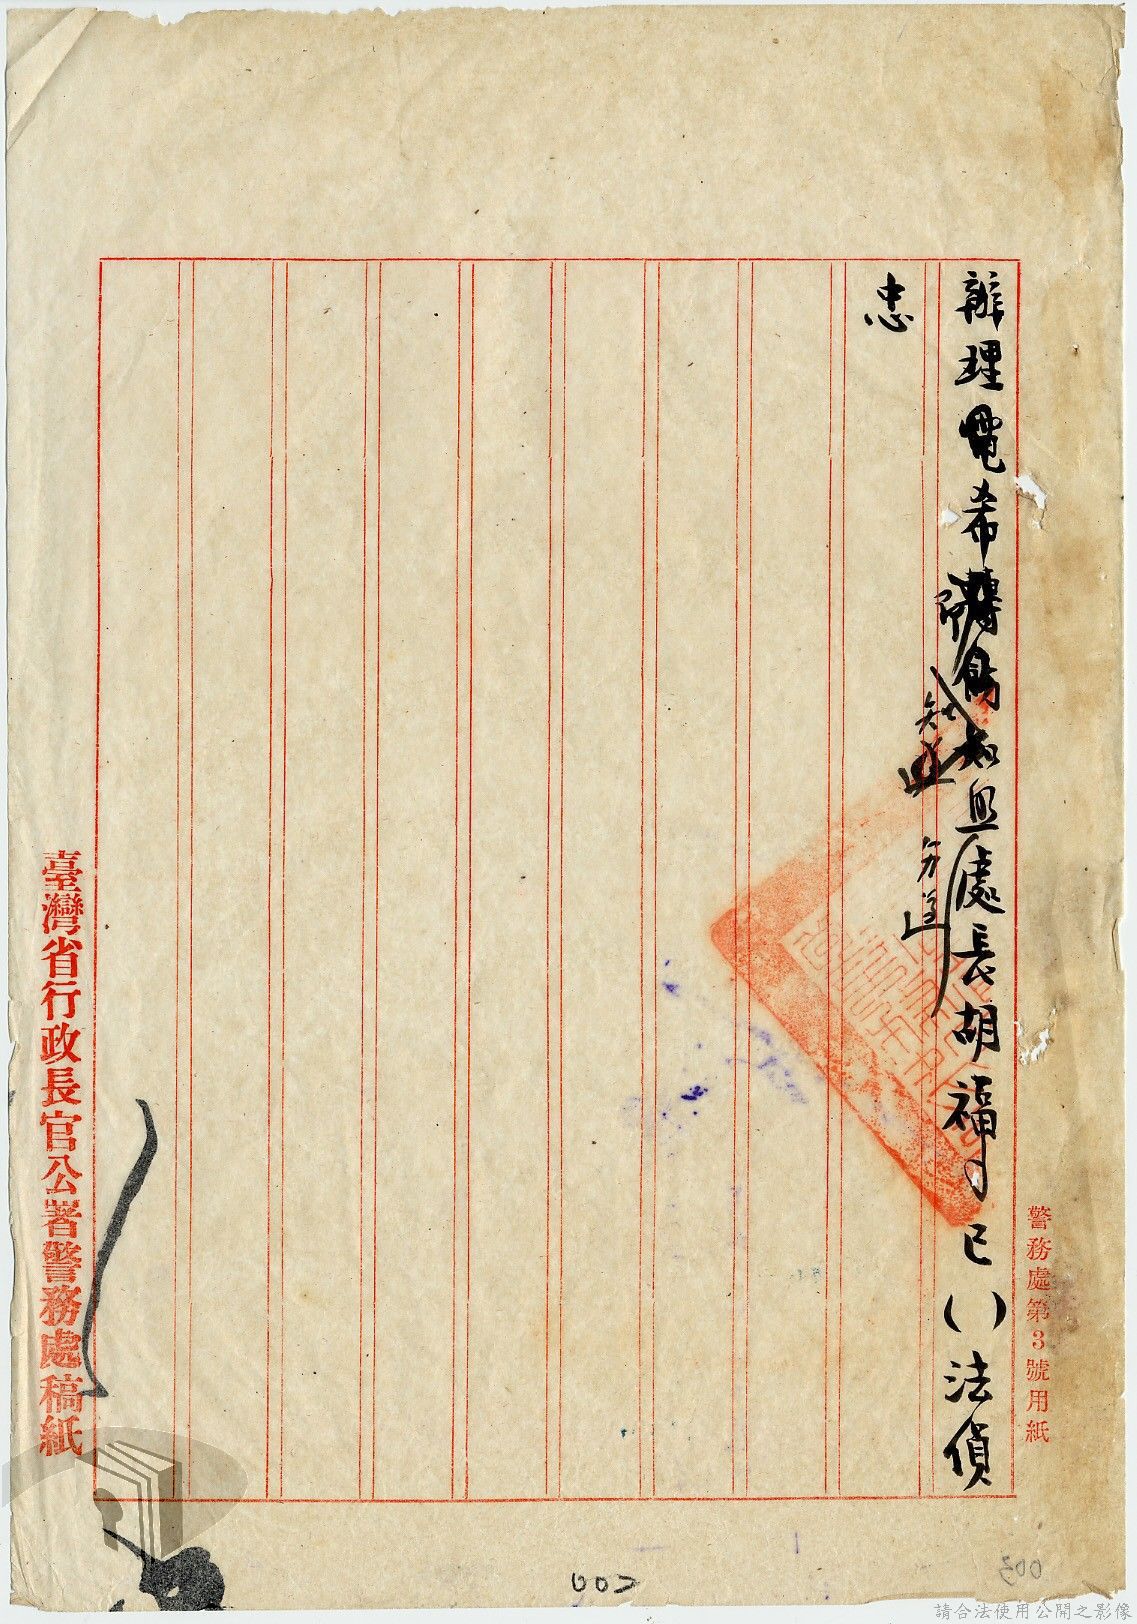 警務處第3號用紙
辦理電希轉飭知照處長胡福
巳()法偵
知照
分道
忠
臺灣省行政長官公署警務處稿紙
002
003
請合法使用公開之影像